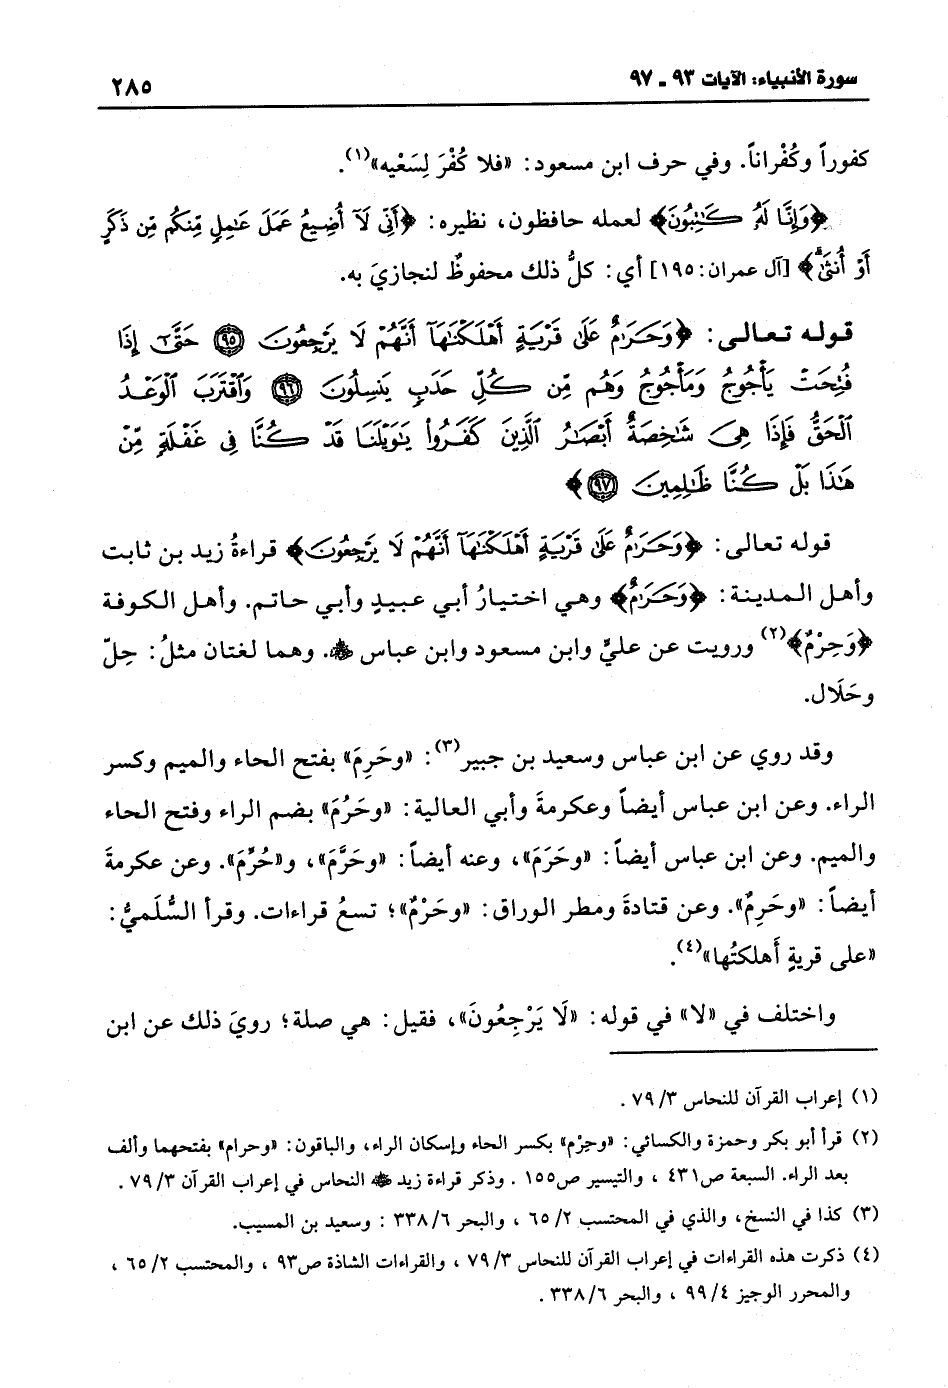 سورة الأنبياء: الآيات ٩٣ ـ ٩٧
٢٨٥
كفوراً وكُفْراناً. وفي حرف ابن مسعود: «فلا كُفْرَ لِسَعْيه»(١).
﴿وَإِنَّا لَهُۥ كَٰتِبُونَ﴾ لعمله حافظون، نظيره: ﴿أَنِّى لَآ أُضِيعُ عَمَلَ عَٰمِلٍ مِّنكُم مِّن ذَكَرٍ
أَوْ أُنثَىٰۖ﴾ [آل عمران: ١٩٥] أي: كلُّ ذلك محفوظٌ لنجازيَ به.
قوله تعالى: ﴿وَحَرَٰمٌ عَلَىٰ قَرْيَةٍ أَهْلَكْنَٰهَآ أَنَّهُمْ لَا يَرْجِعُونَ ۝٩٥ حَتَّىٰٓ إِذَا
فُتِحَتْ يَأْجُوجُ وَمَأْجُوجُ وَهُم مِّن كُلِّ حَدَبٍ يَنسِلُونَ ۝٩٦ وَٱقْتَرَبَ ٱلْوَعْدُ
ٱلْحَقُّ فَإِذَا هِىَ شَٰخِصَةٌ أَبْصَٰرُ ٱلَّذِينَ كَفَرُوا۟ يَٰوَيْلَنَا قَدْ كُنَّا فِى غَفْلَةٍ مِّنْ
هَٰذَا بَلْ كُنَّا ظَٰلِمِينَ ۝٩٧﴾
قوله تعالى: ﴿وَحَرَٰمٌ عَلَىٰ قَرْيَةٍ أَهْلَكْنَٰهَآ أَنَّهُمْ لَا يَرْجِعُونَ﴾ قراءةُ زيد بن ثابت
وأهل المدينة: ﴿وَحَرَٰمٌ﴾ وهي اختيارُ أبي عبيدٍ وأبي حاتم. وأهل الكوفة
﴿وَحِرْمٌ﴾(٢) ورويت عن عليٍّ وابن مسعود وابن عباس ﷺ. وهما لغتان مثلُ: حِلّ
وحَلَال.
وقد روي عن ابن عباس وسعيد بن جبير(٣): «وحَرِمَ» بفتح الحاء والميم وكسر
الراء. وعن ابن عباس أيضاً وعكرمةَ وأبي العالية: «وحَرُمَ» بضم الراء وفتح الحاء
والميم. وعن ابن عباس أيضاً: «وحَرَمَ»، وعنه أيضاً: «وحَرَّمَ»، و«حُرِّمَ». وعن عكرمةَ
أيضاً: «وحَرِمٌ». وعن قتادةَ ومطر الوراق: «وحَرْمٌ»؛ تسعُ قراءات. وقرأ السُّلَميُّ:
«على قريةٍ أَهلكتُها»(٤).
واختلف في «لا» في قوله: «لَا يَرْجِعُونَ»، فقيل: هي صلة؛ رويَ ذلك عن ابن
(١) إعراب القرآن للنحاس ٣/ ٧٩ .
(٢) قرأ أبو بكر وحمزة والكسائي: «وحِرْم» بكسر الحاء وإسكان الراء، والباقون: «وحرام» بفتحهما وألف
بعد الراء. السبعة ص٤٣١ ، والتيسير ص١٥٥ . وذكر قراءة زيد ﷺ النحاس في إعراب القرآن ٣/ ٧٩ .
(٣) كذا في النسخ، والذي في المحتسب ٢/ ٦٥ ، والبحر ٦/ ٣٣٨ : وسعيد بن المسيب.
(٤) ذكرت هذه القراءات في إعراب القرآن للنحاس ٣/ ٧٩ ، والقراءات الشاذة ص٩٣ ، والمحتسب ٢/ ٦٥ ،
والمحرر الوجيز ٤/ ٩٩ ، والبحر ٦/ ٣٣٨ .